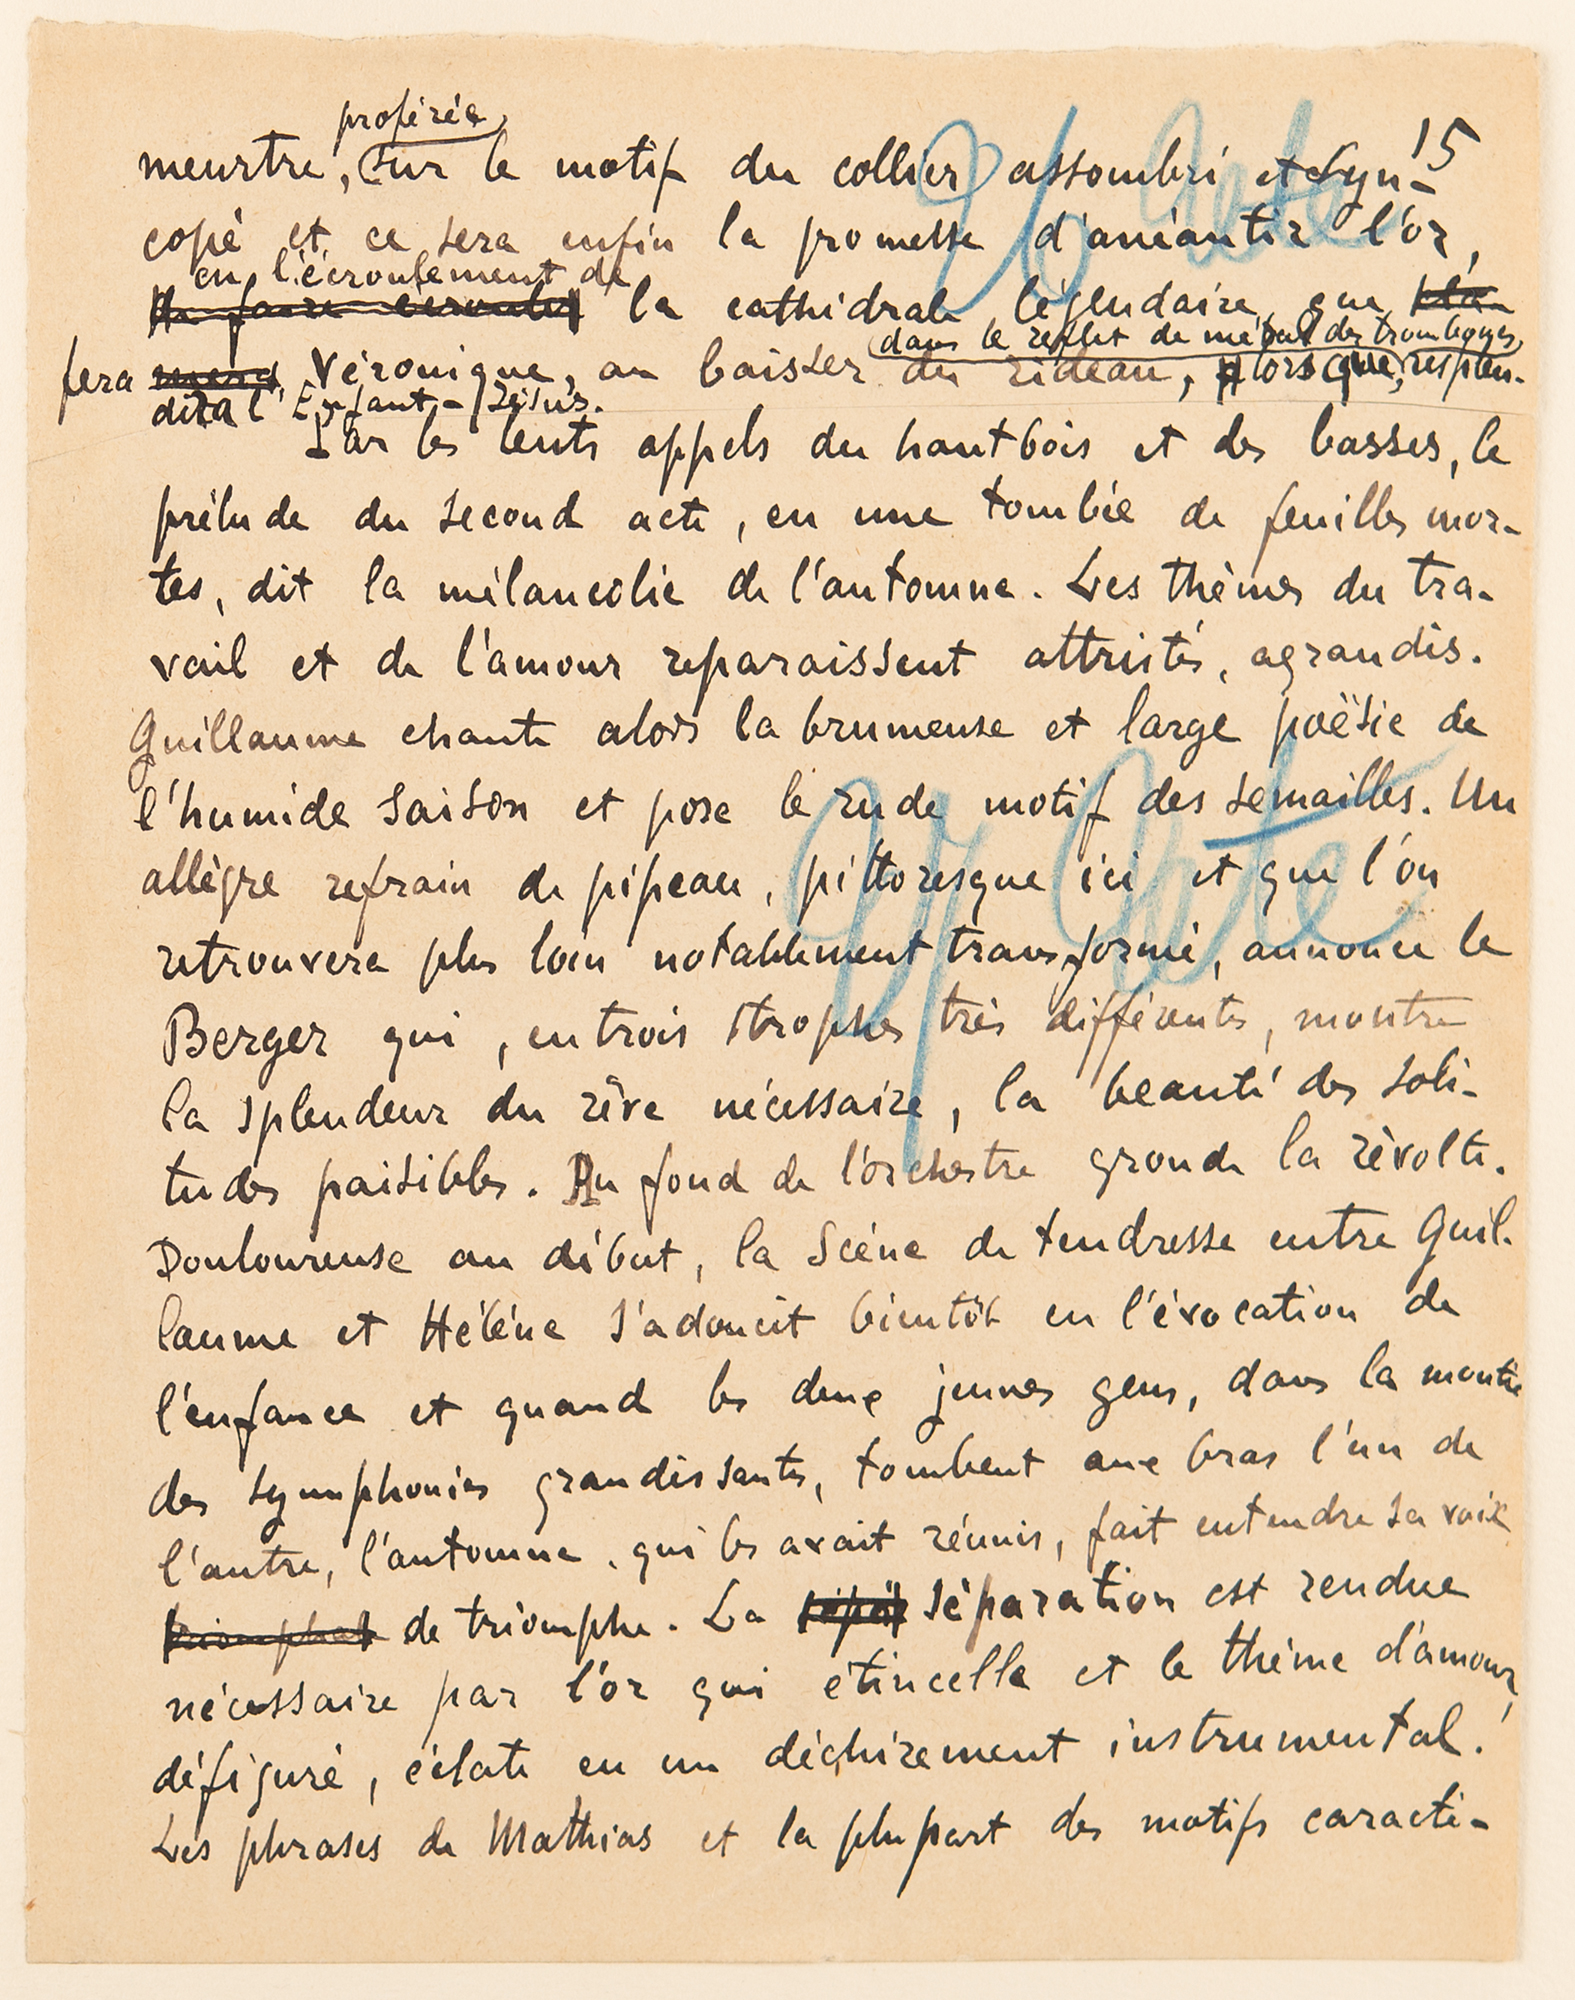 15
proférée,
meurtre, sur le motif du collier assombri et syn-
copé et ce sera enfin la promesse d'anéantir l'or,
en l'écroulement de
de faire écrouler la cathédrale légendaire que
dans le reflet de métal des trombones,
fera Véronique, au baisser du rideau, alors que, resplen-
dira l'Enfant-Jésus.
Par les lents appels du hautbois et des basses, le
prélude du second acte, en une tombée de feuilles mor-
tes, dit la mélancolie de l'automne. Les thèmes du tra-
vail et de l'amour reparaissent attristés, agrandis.
Guillaume chante alors la brumeuse et large poësie de
l'humide saison et pose le rude motif des semailles. Un
allègre refrain de pipeau, pittoresque ici et que l'on
retrouvera plus loin notablement transformé, annonce le
Berger qui, en trois strophes très différentes, montre
la splendeur du rêve nécessaire, la beauté des soli-
tudes paisibles. Au fond de l'orchestre gronde la révolte.
Douloureuse au début, la scène de tendresse entre Guil-
laume et Hélène s'adoucit bientôt en l'évocation de
l'enfance et quand les deux jeunes gens, dans la montée
des symphonies grandissantes, tombent aux bras l'un de
l'autre, l'automne, qui les avait réunis, fait entendre sa voix
triomphale de triomphe. La sépa séparation est rendue
nécessaire par l'or qui étincelle et le thème d'amour,
défiguré, éclate en un déchirement instrumental.
Les phrases de Mathias et la plupart des motifs caracté-